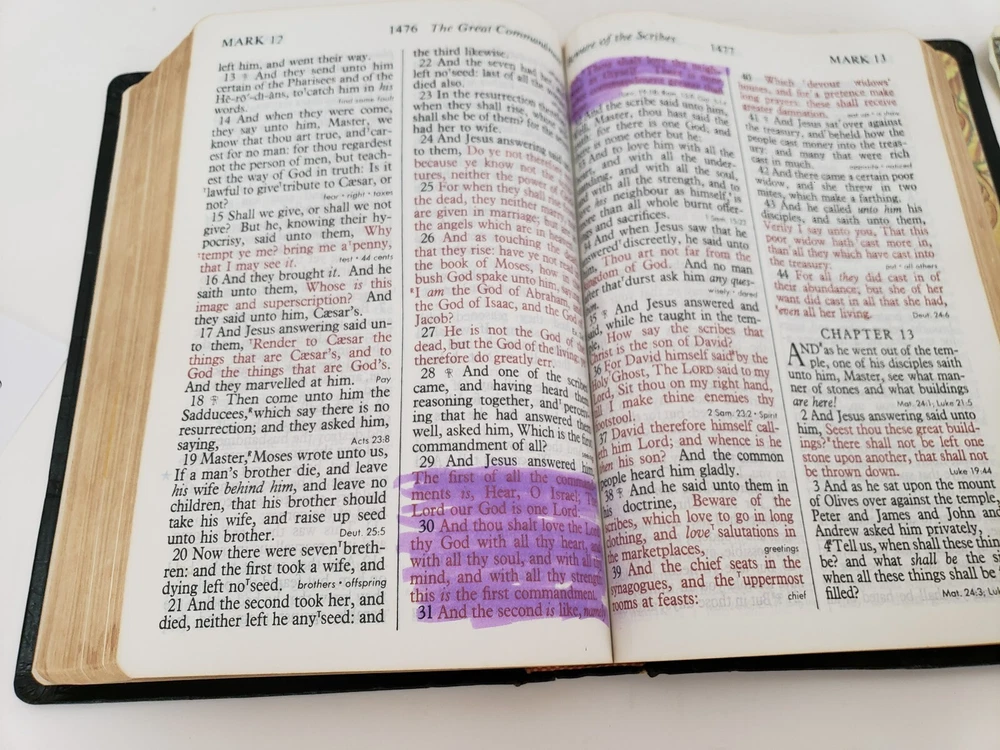 MARK 12
1476 The Great Command
left him, and went their way.
13 ¶ And they send unto him
certain of the Pharisees and of the
Hē-rō'-dĭ-āns, to catch him in his
words.
find some fault
14 And when they were come,
they say unto him, Master, we
know that thou art true, and car-
est for no man: for thou regardest
not the person of men, but teach-
est the way of God in truth: Is it
lawful to give tribute to Cæsar, or
not?
fear • right • taxes
15 Shall we give, or shall we not
give? But he, knowing their hy-
pocrisy, said unto them, Why
tempt ye me? bring me a penny,
that I may see it.
test • 44 cents
16 And they brought it. And he
saith unto them, Whose is this
image and superscription? And
they said unto him, Cæsar's.
17 And Jesus answering said un-
to them, Render to Cæsar the
things that are Cæsar's, and to
God the things that are God's.
And they marvelled at him. Pay
18 ¶ Then come unto him the
Sadducees, which say there is no
resurrection; and they asked him,
saying, Acts 23:8
19 Master, Moses wrote unto us,
If a man's brother die, and leave
his wife behind him, and leave no
children, that his brother should
take his wife, and raise up seed
unto his brother. Deut. 25:5
20 Now there were seven breth-
ren: and the first took a wife, and
dying left no seed. brothers • offspring
21 And the second took her, and
died, neither left he any seed: and
the third likewise.
22 And the seven had
left no seed: last of all the
died also.
23 In the resurrection
when they shall rise, who
shall she be of them? for the
had her to wife.
24 And Jesus answering said
to them, Do ye not therefore
because ye know not the
tures, neither the power of
25 For when they shall rise
the dead, they neither marry,
are given in marriage; but
the angels which are in heaven
26 And as touching the dead
that they rise: have ye not read
the book of Moses, how in
bush God spake unto him, saying
I am the God of Abraham,
the God of Isaac, and the God
Jacob?
27 He is not the God of
dead, but the God of the living
therefore do greatly err.
28 ¶ And one of the scribes
came, and having heard them
reasoning together, and perceiv
ing that he had answered them
well, asked him, Which is the first
commandment of all?
29 And Jesus answered him
The first of all the comma
ments is, Hear, O Israel; T
Lord our God is one Lord:
30 And thou shalt love the Lord
thy God with all thy heart, and
with all thy soul, and with all thy
mind, and with all thy strength
this is the first commandment.
31 And the second is like, namely
of the Scribes 1477
MARK 13
And the scribe said unto him,
Master, thou hast said the
for there is one God; and
is none other but he:
And to love him with all the
and with all the under-
and with all the soul, and
with all the strength, and to
his neighbour as himself, is
more than all whole burnt offer-
and sacrifices. 1 Sam. 15:22
And when Jesus saw that he
discreetly, he said unto
Thou art not far from the
kingdom of God. And no man
after that durst ask him any ques-
wisely • dared
35 ¶ And Jesus answered and
said, while he taught in the tem-
How say the scribes that
Christ is the son of David?
36 For David himself said by the
Holy Ghost, The LORD said to my
Lord, Sit thou on my right hand,
I make thine enemies thy
footstool. 2 Sam. 23:2 • Spirit
37 David therefore himself call-
him Lord; and whence is he
his son? And the common
people heard him gladly.
38 ¶ And he said unto them in
his doctrine, Beware of the
scribes, which love to go in long
clothing, and love salutations in
the marketplaces, greetings
39 And the chief seats in the
synagogues, and the uppermost
rooms at feasts: chief
40 Which devour widows'
houses, and for a pretence make
long prayers: these shall receive
greater damnation.
41 ¶ And Jesus sat over against
the treasury, and beheld how the
people cast money into the treas-
ury: and many that were rich
cast in much. opposite • noticed
42 And there came a certain poor
widow, and she threw in two
mites, which make a farthing.
43 And he called unto him his
disciples, and saith unto them,
Verily I say unto you, That this
poor widow hath cast more in,
than all they which have cast into
the treasury: put • all others
44 For all they did cast in of
their abundance; but she of her
want did cast in all that she had,
even all her living. Deut. 24:6
CHAPTER 13
AND as he went out of the tem-
ple, one of his disciples saith
unto him, Master, see what man-
ner of stones and what buildings
are here! Mat. 24:1; Luke 21:5
2 And Jesus answering said unto
him, Seest thou these great build-
ings? there shall not be left one
stone upon another, that shall not
be thrown down. Luke 19:44
3 And as he sat upon the mount
of Olives over against the temple
Peter and James and John and
Andrew asked him privately,
4 Tell us, when shall these thin
be? and what shall be the si
when all these things shall be
filled? Mat. 24:3; Luk